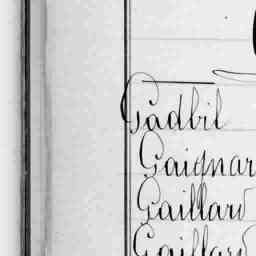 Gadbil
Gaignar
Gaillard
Gaillard